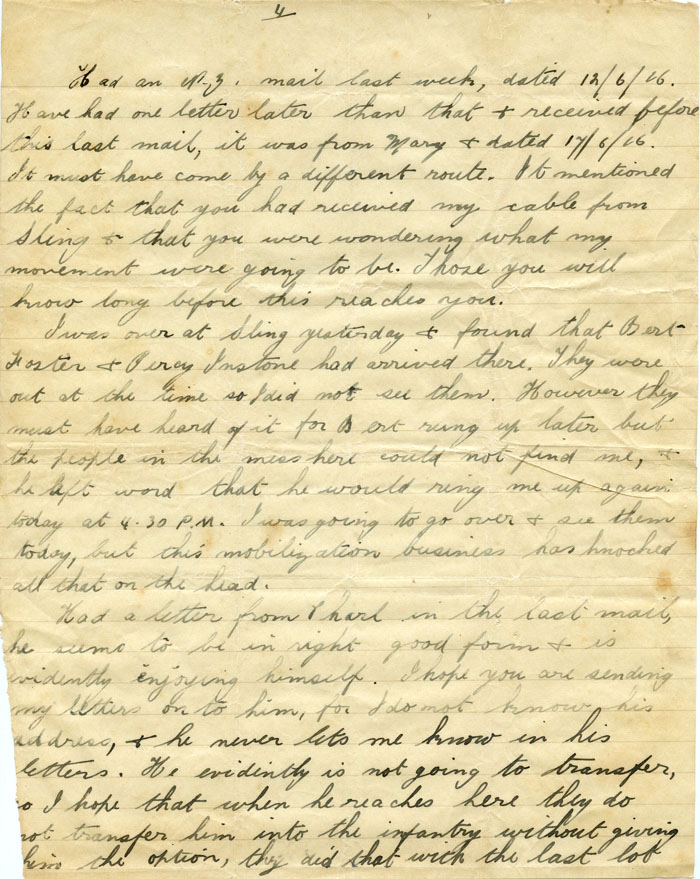 4
Had an N.Z. mail last week, dated 12/6/16.
Have had one letter later than that & received before
this last mail, it was from Mary & dated 17/6/16.
It must have come by a different route. It mentioned
the fact that you had received my cable from
Sling & that you were wondering what my
movement were going to be. Those you will
know long before this reaches you.
I was over at Sling yesterday & found that Bert
Foster & Percy Instone had arrived there. They were
out at the time so I did not see them. However they
must have heard of it for Bert rung up later but
the people in the mess here could not find me, &
he left word that he would ring me up again
today at 4.30 P.M. I was going to go over & see them
today, but this mobilization business has knocked
all that on the head.
Had a letter from in the last mail,
he seems to be in right good form & is
evidently enjoying himself. I hope you are sending
my letters on to him, for I do not know his
address, & he never lets me know in his
letters. He evidently is not going to transfer,
so I hope that when he reaches here they do
not transfer him into the infantry without giving
him the option, they did that with the last lot